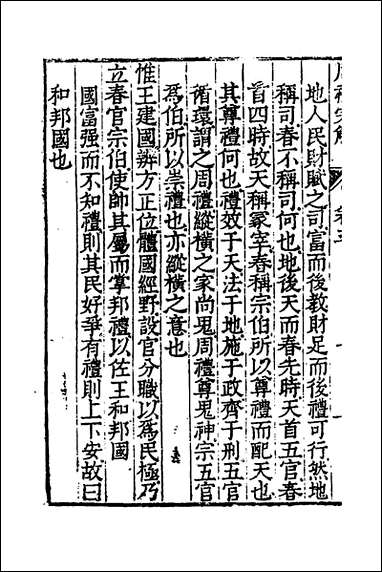 地人民財賦之司富而後教財足而後禮可行然地
稱司春不稱司何也地後天而春先時天首五官春
首四時故天稱冢宰春稱宗伯所以尊禮而配天也
其尊禮何也禮效于天法于地施于政齊于刑五官
循環謂之周禮縱橫之家尚鬼周禮尊鬼神宗五官
為伯所以崇禮也亦縱橫之意也
惟王建國辨方正位體國經野設官分職以為民極乃
立春官宗伯使帥其屬而掌邦禮以佐王和邦國
國富强而不知禮則其民好爭有禮則上下安故曰
和邦國也